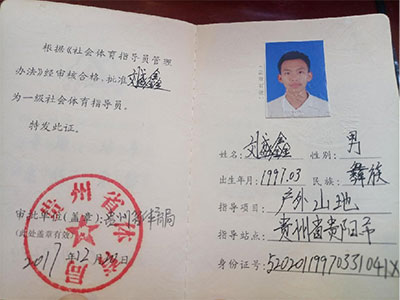 根据《社会体育指导员管理
办法》经审核合格,批准刘威鑫
为一级社会体育指导员。
特发此证。
审批单位(盖章):贵州省体育局
(此处盖章有效)
2017年12月20日
贵州省体育局
姓名:刘威鑫 性别:男
出生年月:1997.03 民族:彝族
指导项目:户外山地
指导站点:贵州省贵阳市
身份证号:52020119970331041X